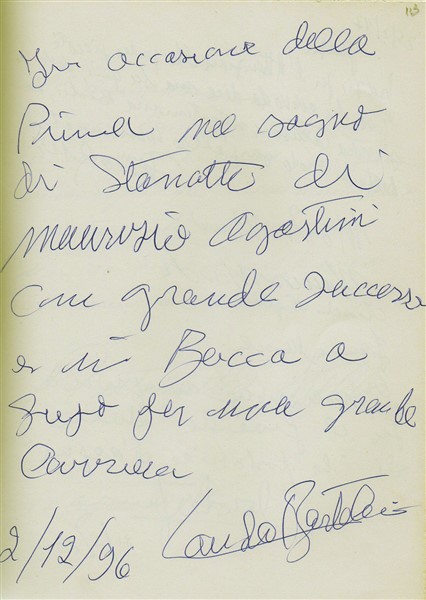 113
In occasione della
Prima nel sogno
di Stanotte di
Maurizio Agostini
con grande successo
e in Bocca a
Lupo per una grande
Carriera
2/12/96